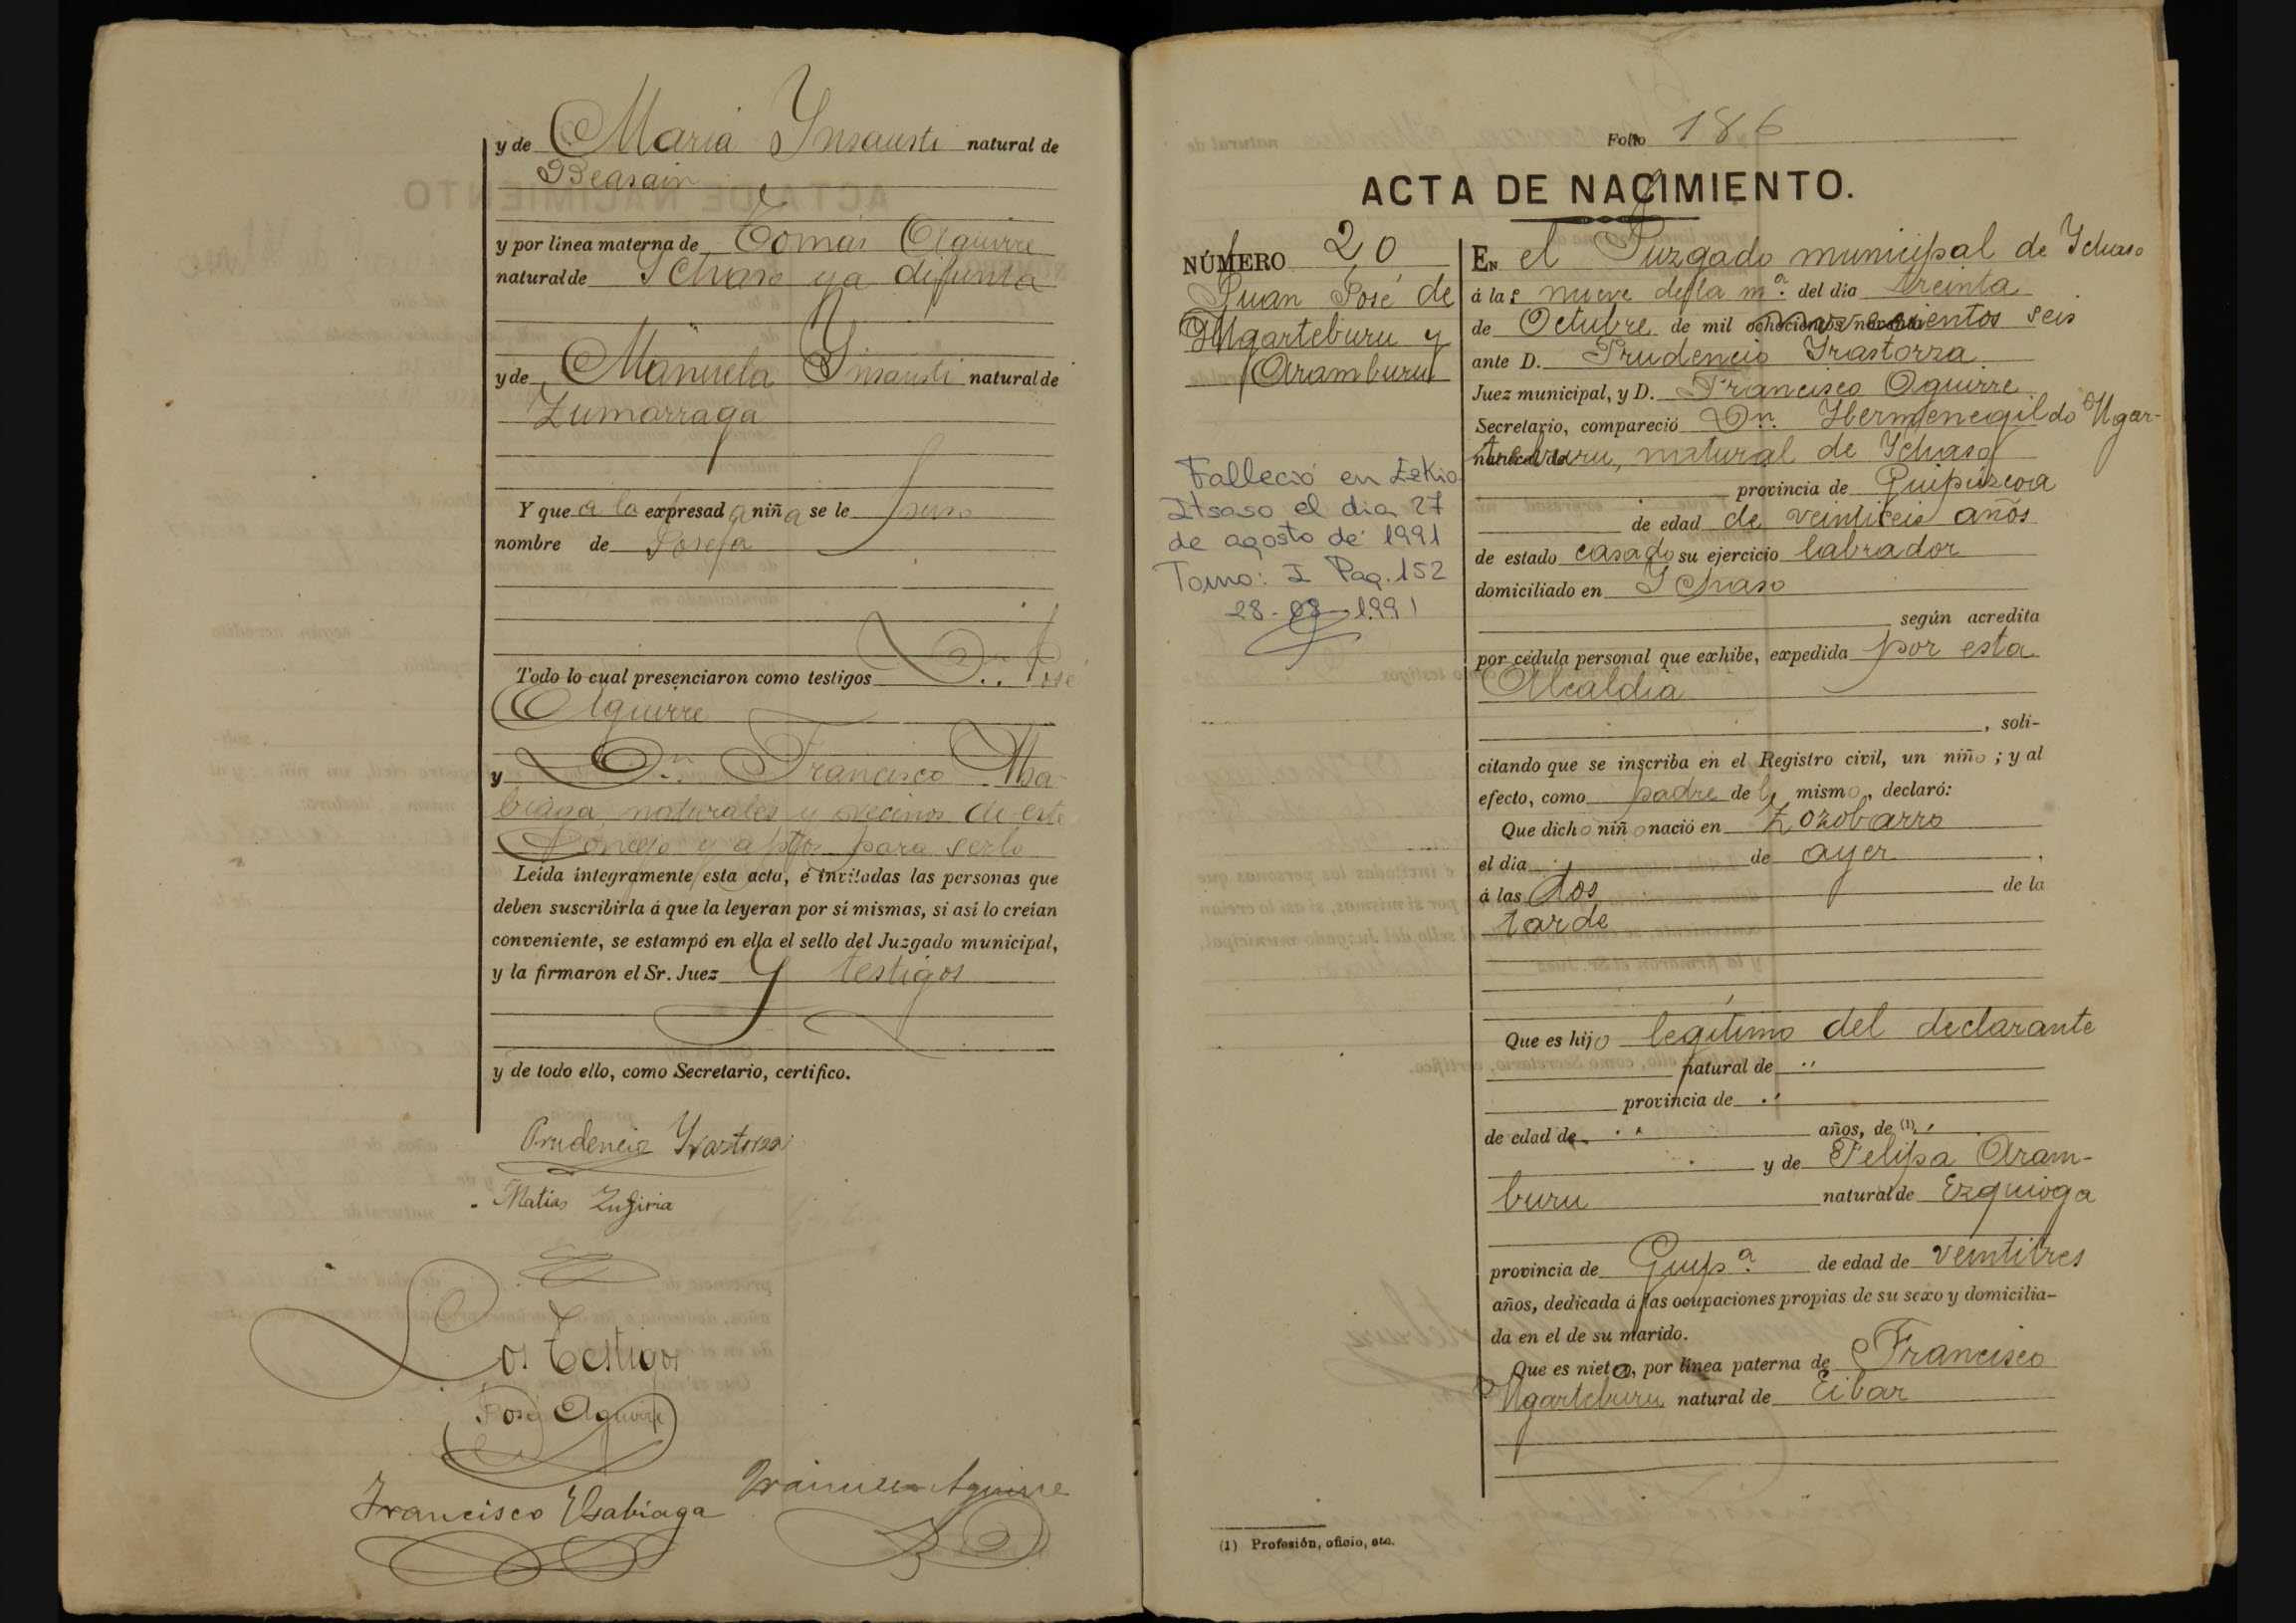 y de María Ynsausti natural de
Beasain
y por línea materna de Tomás Aguirre
natural de Ychaso ya difunta
y de Manuela Ynsausti natural de
Zumarraga
Y que a la expresada niña se le puso
nombre de Josefa
Todo lo cual presenciaron como testigos Dn. José
Aguirre
y Dn. Francisco Usa-
biaga naturales y vecinos de este
Concejo y aptos para serlo
Leída íntegramente esta acta, é invitadas las personas que
deben suscribirla á que la leyeran por sí mismas, si así lo creían
conveniente, se estampó en ella el sello del Juzgado municipal,
y la firmaron el Sr. Juez y testigos
y de todo ello, como Secretario, certifico.
Prudencio Yrastorza
Matias
Los Testigos
José Aguirre
Francisco Usabiaga
Francisco Aguirre
Folio 186
ACTA DE NACIMIENTO.
NÚMERO 20
Juan José de
Ugarteburu y
Aramburu
Falleció en Ezkio
Itsaso el dia 27
de agosto de 1991
Tomo: I Pag. 152
28-08-1991
EN el Juzgado municipal de Ychaso
á las nueve de la mª. del día treinta
de Octubre de mil novecientos seis
ante D. Prudencio Yrastorza
Juez municipal, y D. Francisco Aguirre
Secretario, compareció Dn. Hermenegildo Ugar-
teburu, natural de Ychaso
provincia de Guipúzcoa
de edad de veintiseis años
de estado casado su ejercicio labrador
domiciliado en Ychaso
según acredita
por cédula personal que exhibe, expedida por esta
Alcaldia
, soli-
citando que se inscriba en el Registro civil, un niño; y al
efecto, como padre del mismo, declaró:
Que dicho niño nació en Zozobarro
el día de ayer,
á las dos de la
tarde
Que es hijo legítimo del declarante
natural de "
provincia de "
de edad de " años, de (1) "
y de Felipa Aram-
buru natural de Ezquioga
provincia de Guipª. de edad de veintitres
años, dedicada á las ocupaciones propias de su sexo y domicilia-
da en el de su marido.
Que es nieto, por línea paterna de Francisco
Ugarteburu natural de Eibar
(1) Profesión, oficio, etc.